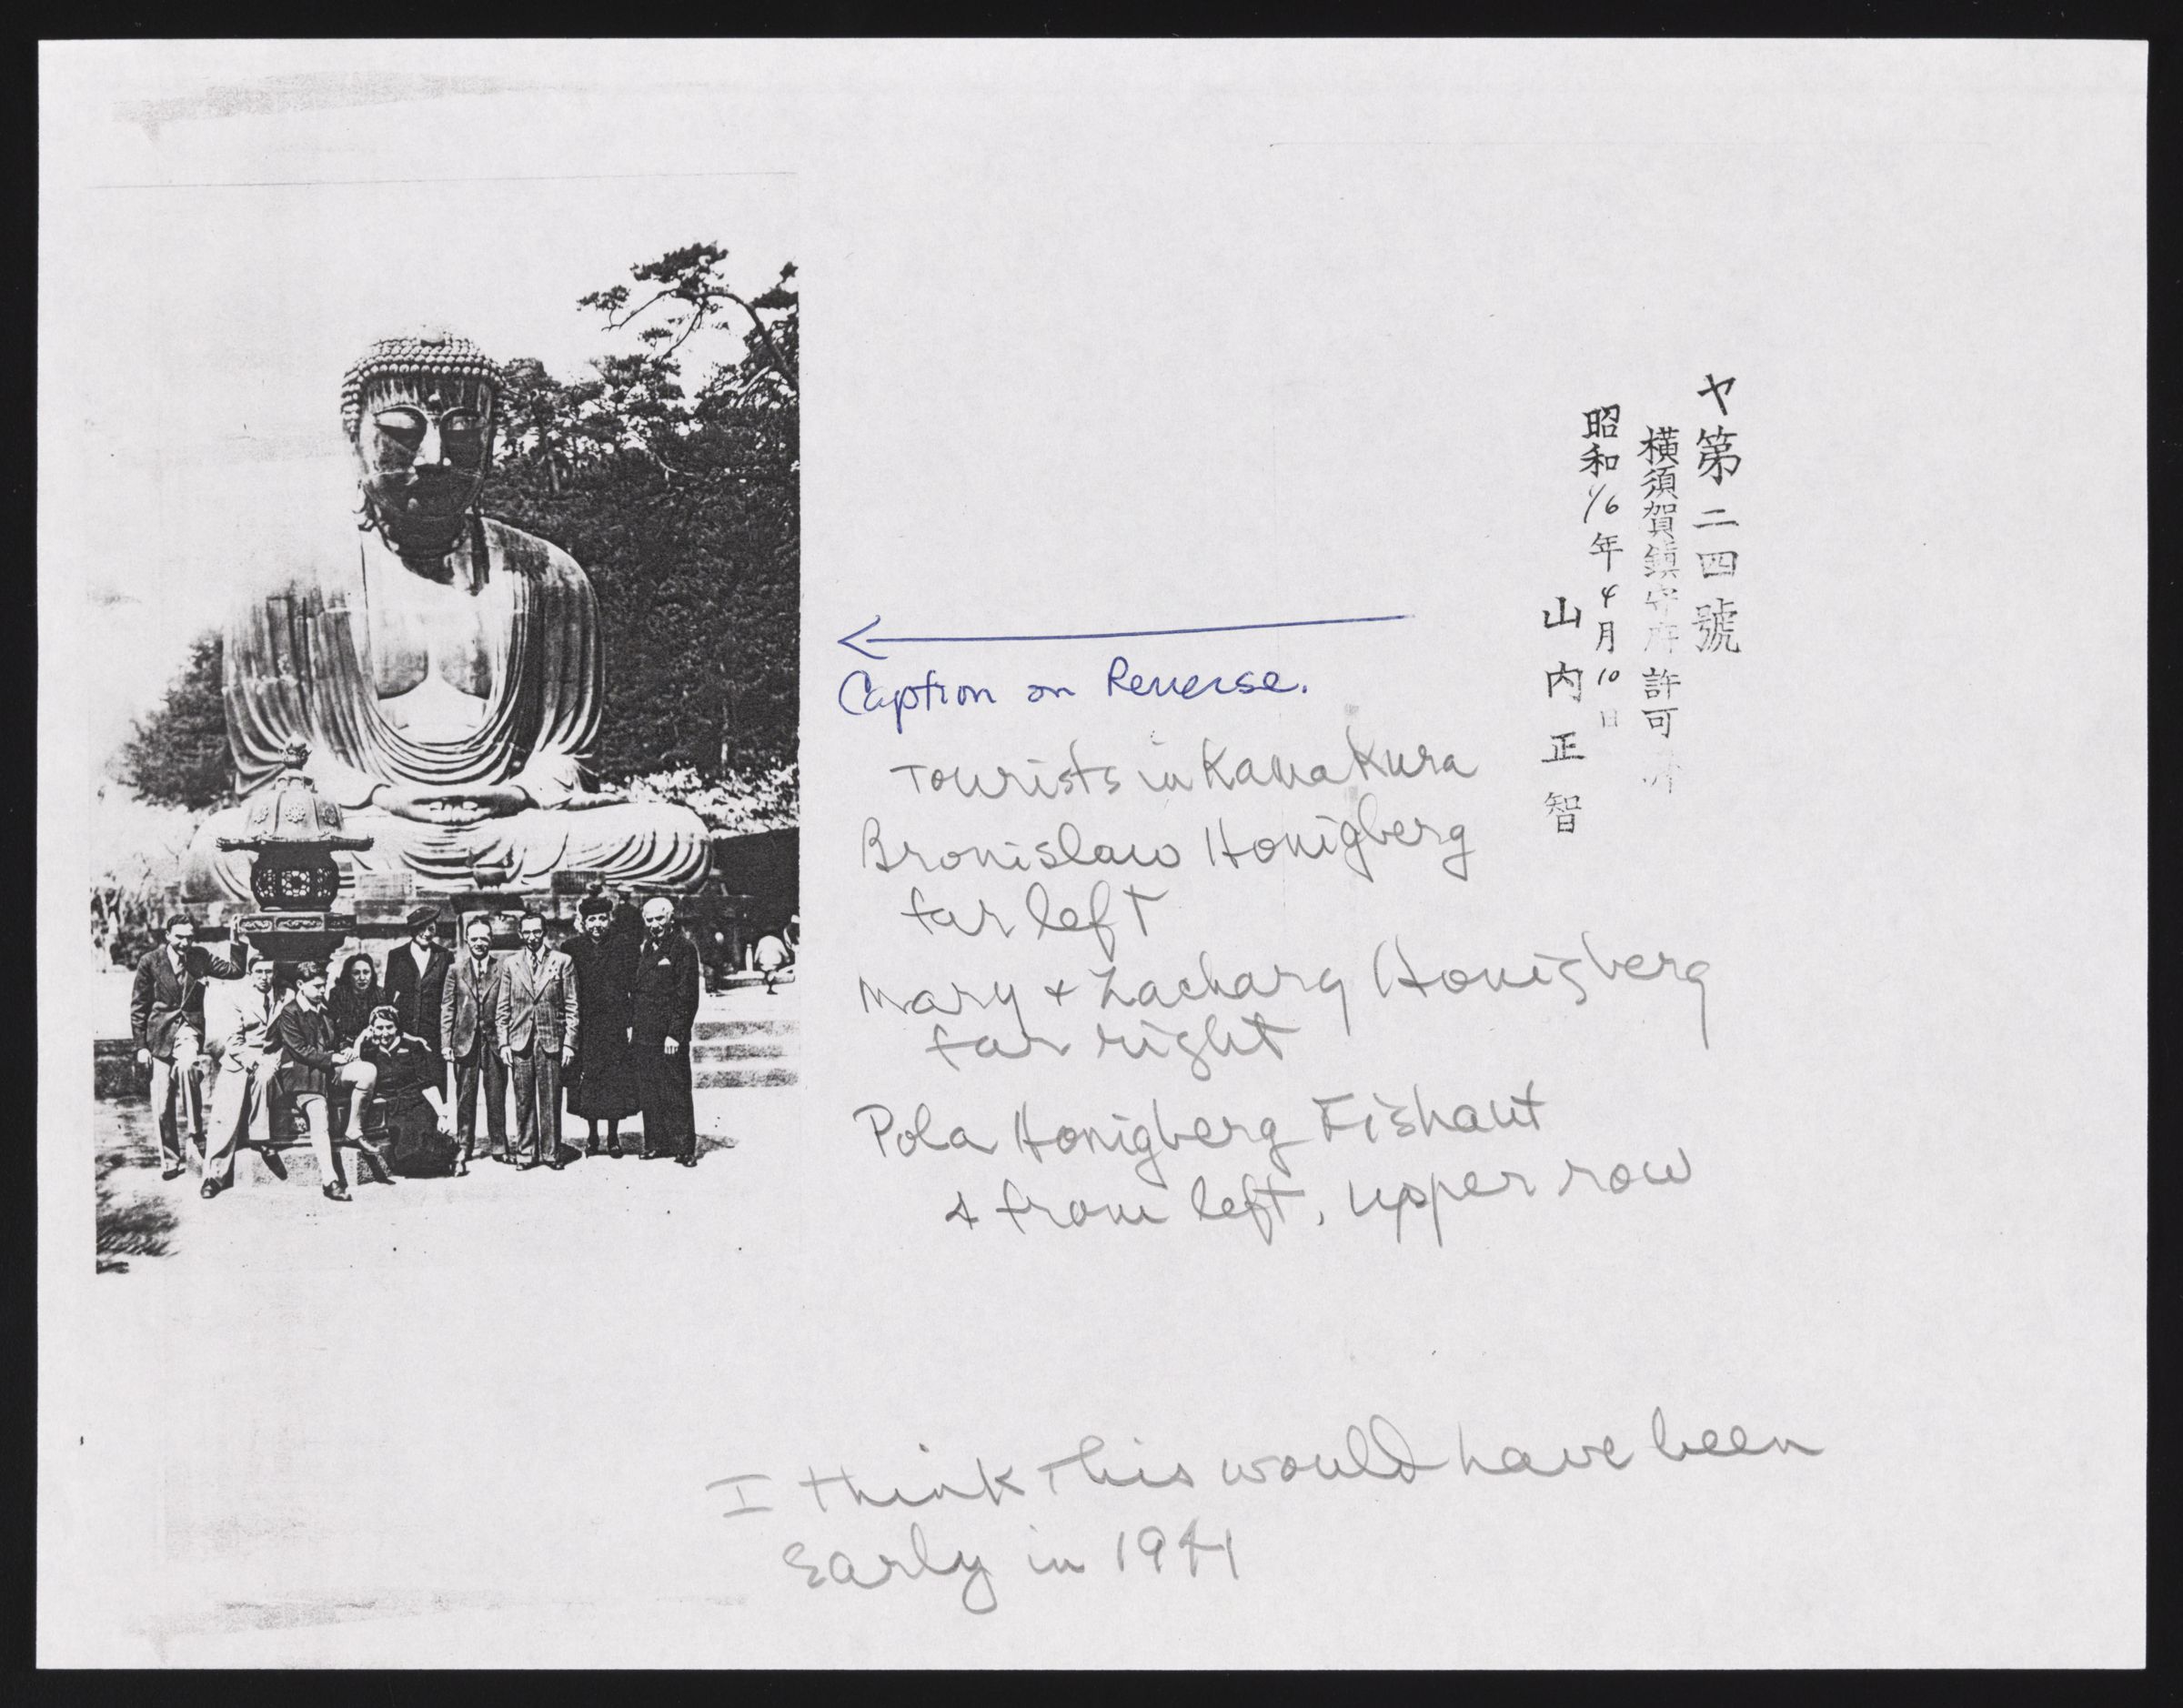 ヤ第二四號
横須賀鎮守府許可済
昭和16年4月10日
山内正智
Caption on Reverse.
Tourists in Kamakura
Bronislaw Honigberg
far left
Mary + Zachary Honigberg
far right
Pola Honigberg Fishaut
4 from left, upper row
I think this would have been
Early in 1941